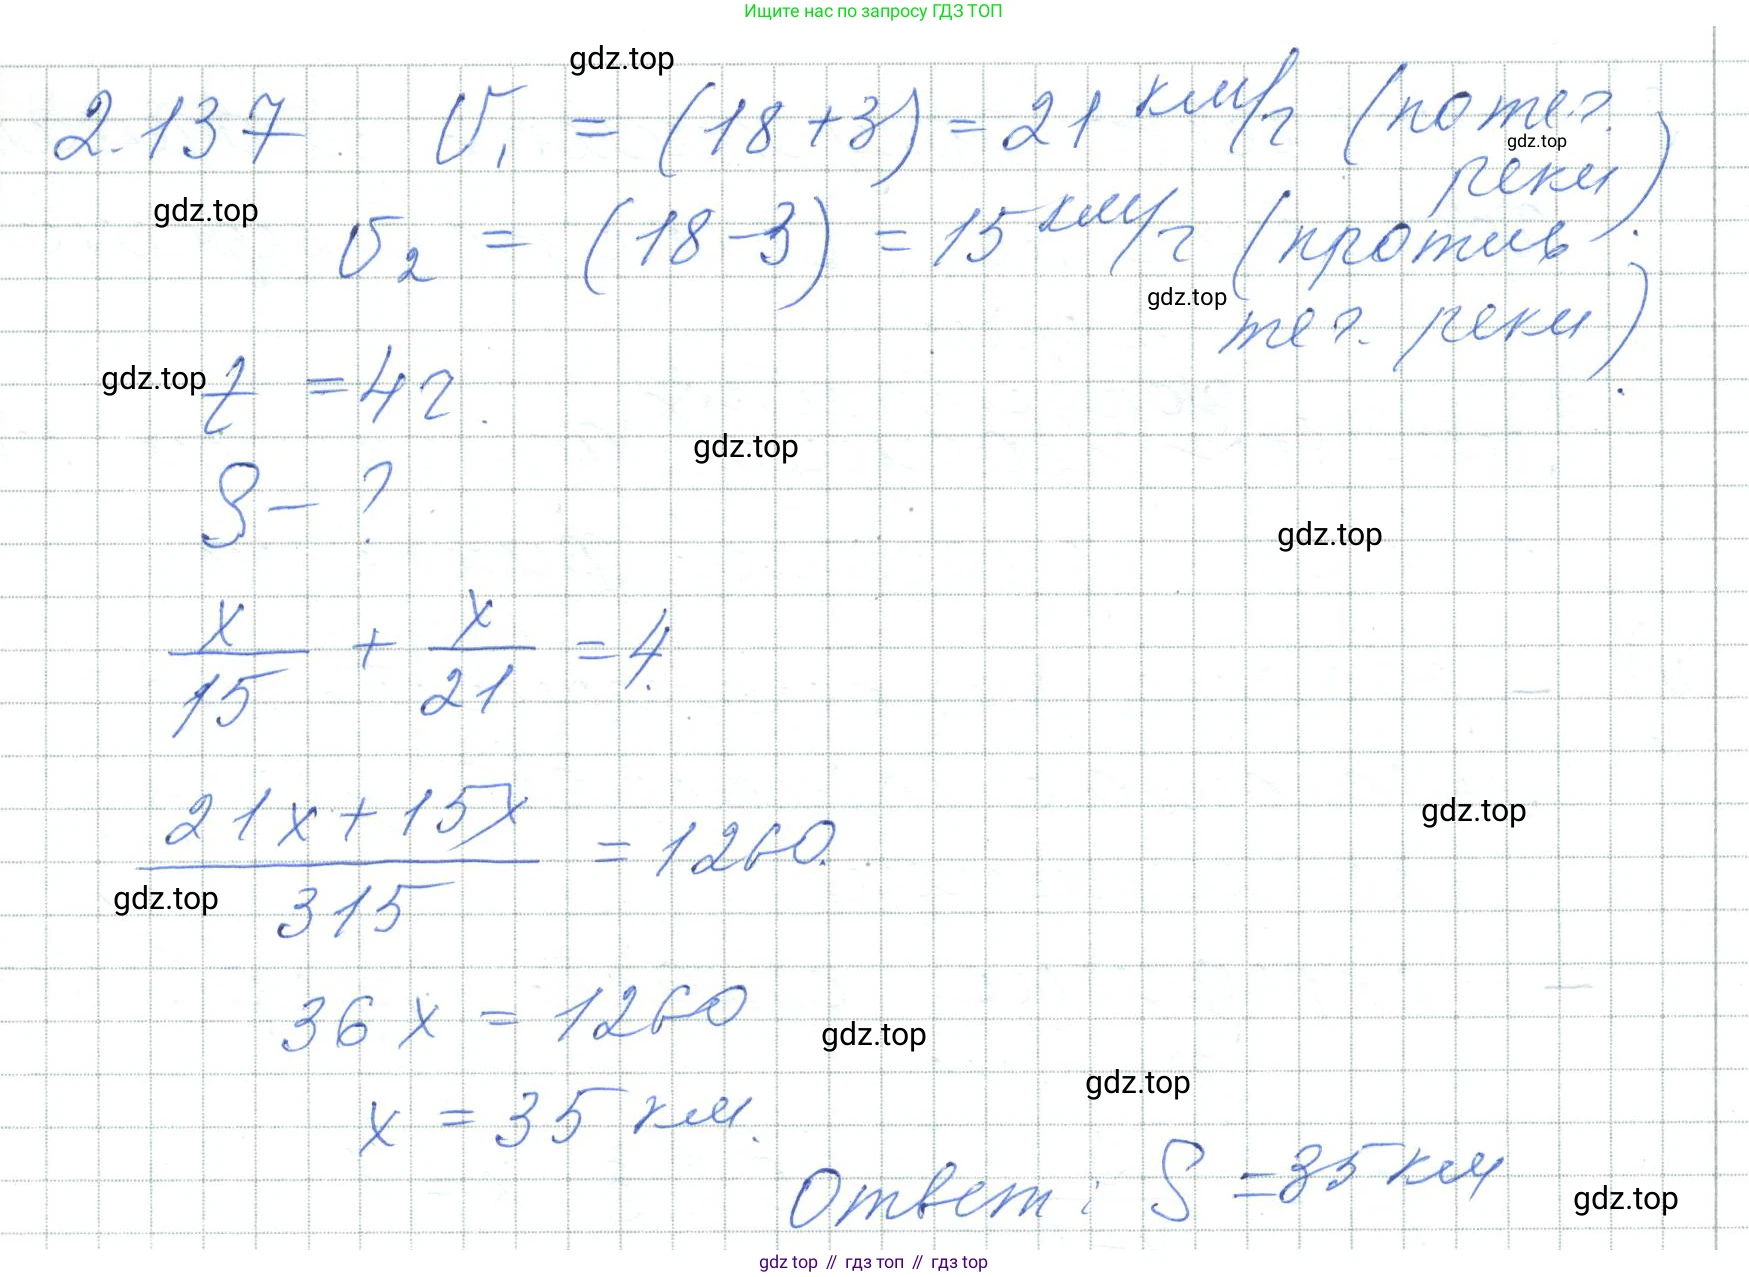 Ищите нас по запросу ГДЗ ТОП
gdz.top
2.137 V₁ = (18+3) = 21 км/ч (по теч.
gdz.top
реки).
gdz.top
V₂ = (18-3) = 15 км/ч (против
gdz.top
теч. реки).
gdz.top
t = 4 ч.
gdz.top
S - ?
gdz.top
x/15 + x/21 = 4.
gdz.top
(21x + 15x)/315 = 1260.
gdz.top
36x = 1260
gdz.top
gdz.top
x = 35 км.
Ответ: S = 35 км
gdz.top
gdz top // гдз топ // gdz top